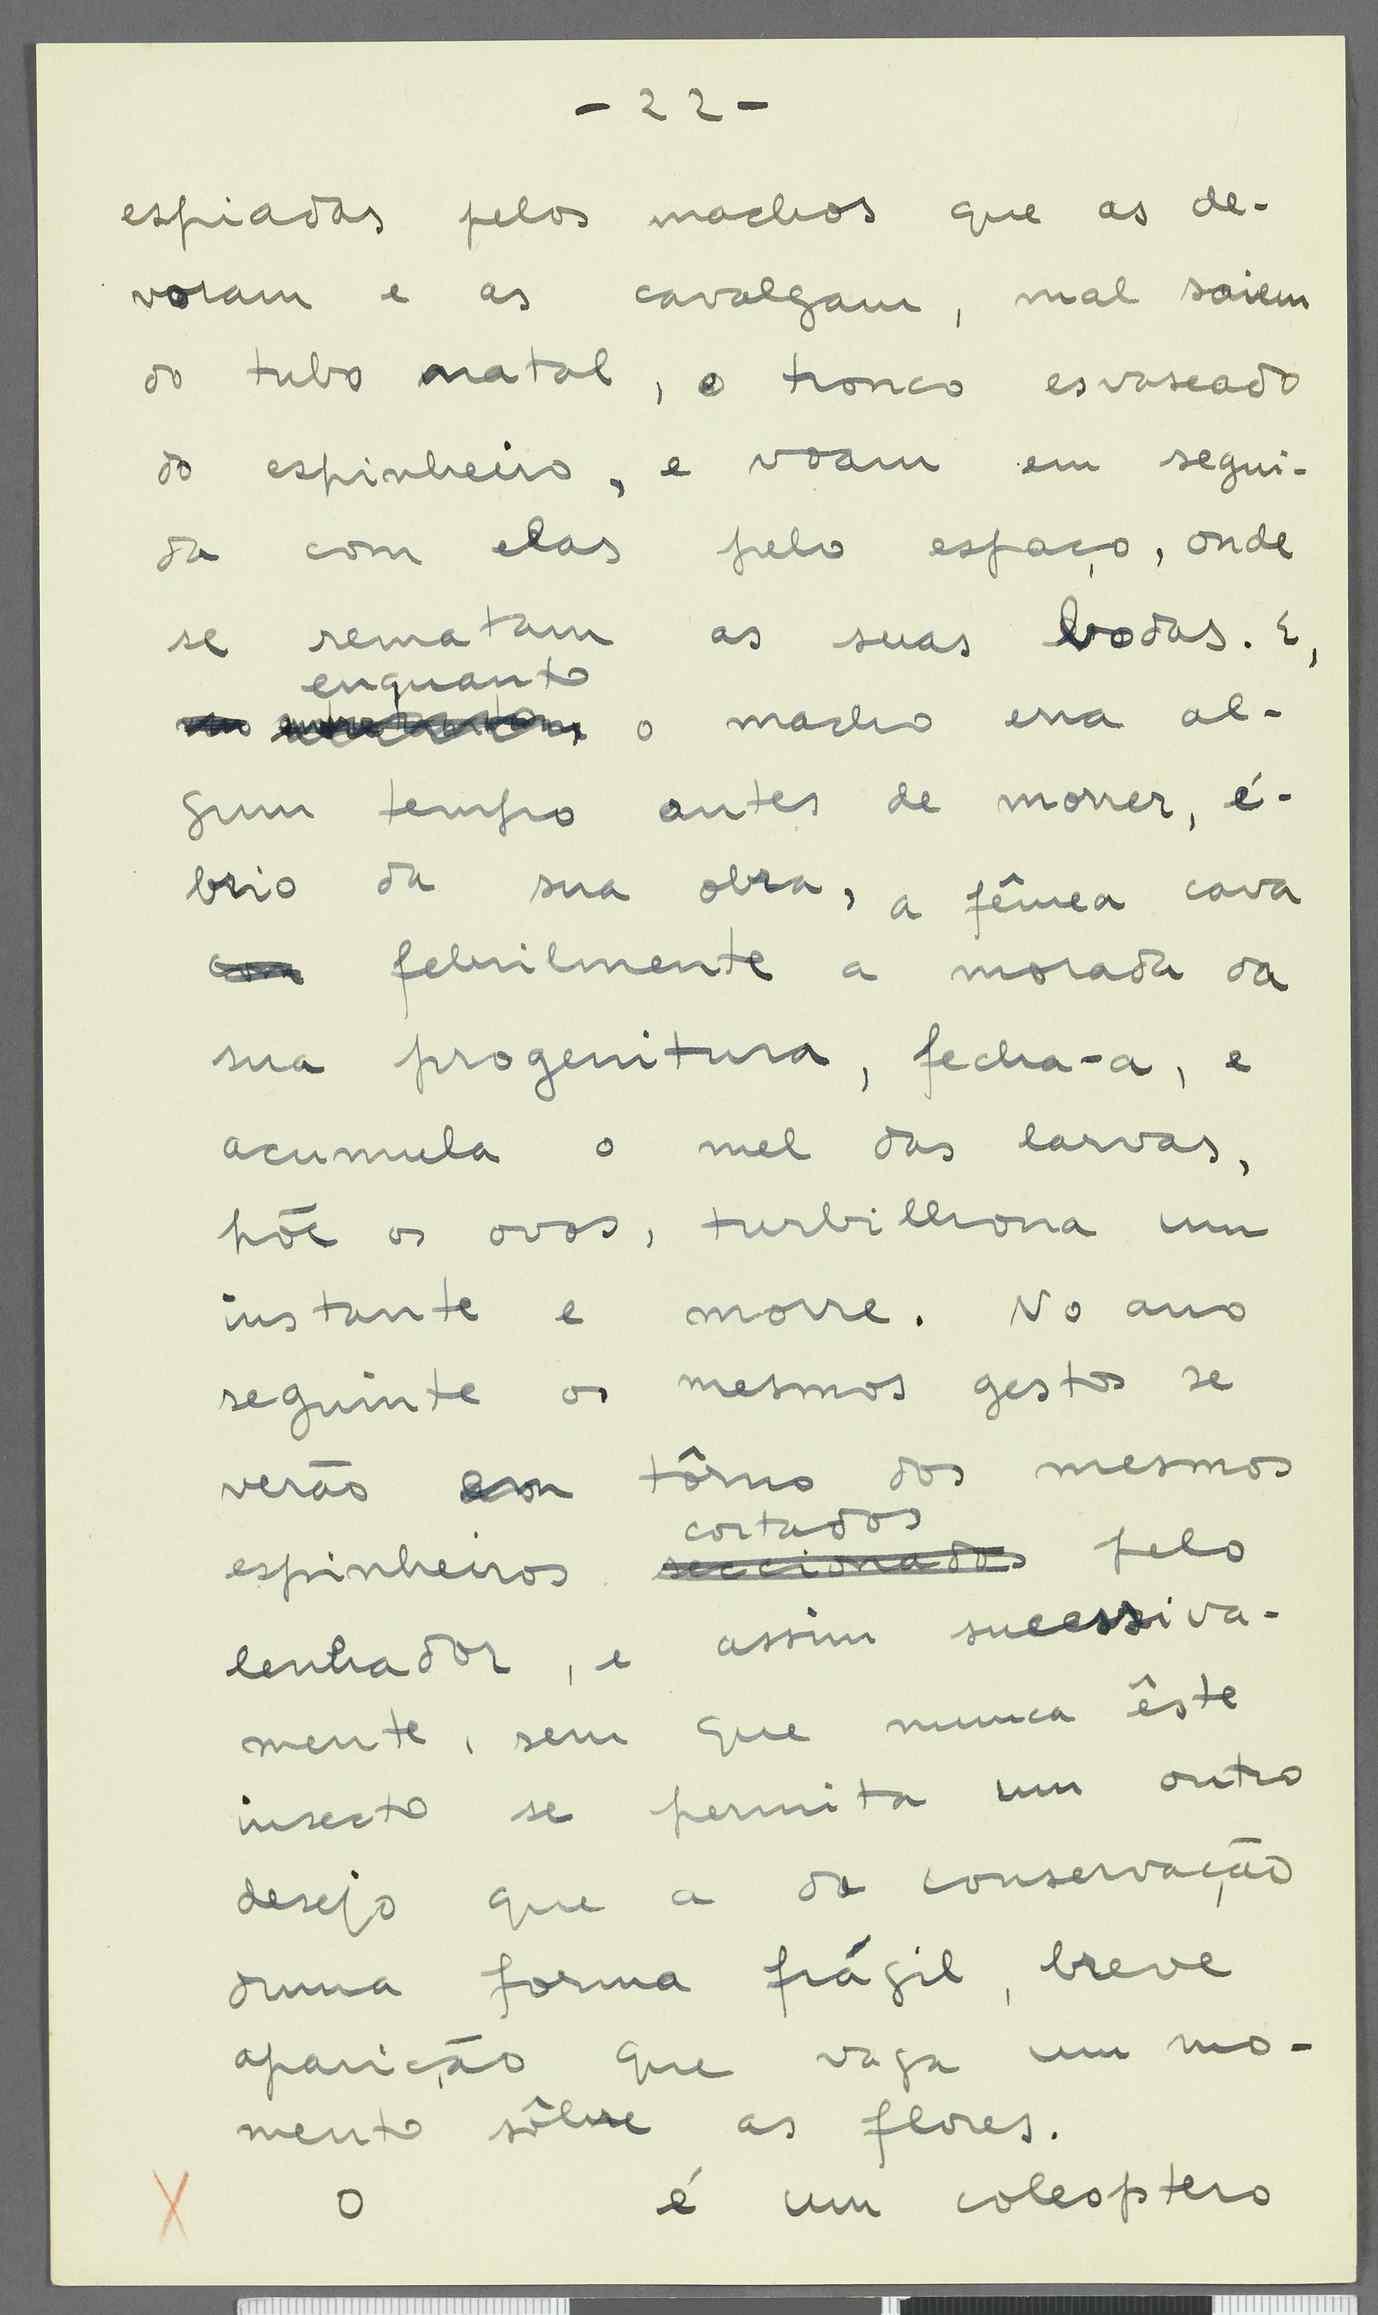 - 22 -
espiadas pelos machos que as de-
voram e as cavalgam, mal saiem
do tubo natal, o tronco esvaseado
do espinheiro, e voam em segui-
da com elas pelo espaço, onde
se rematam as suas bodas. E,
enquanto
no entretanto, o macho erra al-
gum tempo antes de morrer, é-
brio da sua obra, a fêmea cava
com febrilmente a morada da
sua progenitura, fecha-a, e
acumula o mel das larvas,
põe os ovos, turbilhona um
instante e morre. No ano
seguinte os mesmos gestos se
verão em tôrno dos mesmos
cortados
espinheiros seccionados pelo
lenhador, e assim sucessiva-
mente, sem que nunca êste
insecto se permita um outro
desejo que a da conservação
duma forma frágil, breve
aparição que vaga um mo-
mento sôbre as flores.
X O é um coleoptero